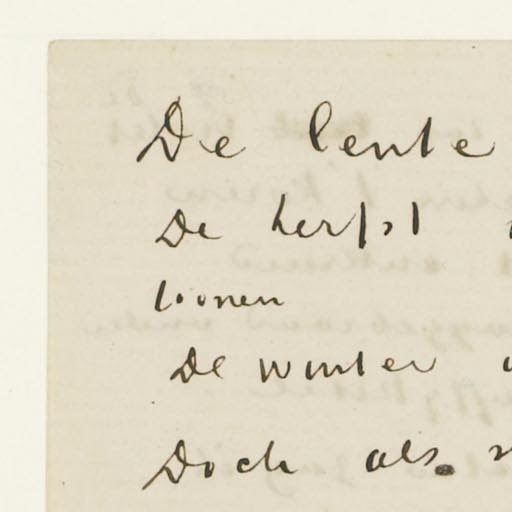 De lente
De herfst
toonen
De winter
Doch als